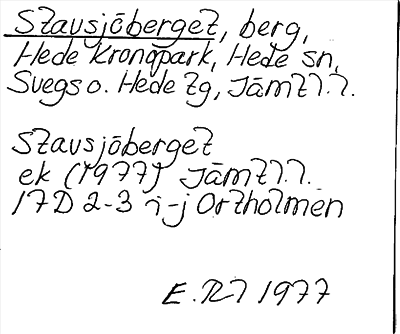 Stavsjöberget, berg,
Hede kronopark, Hede sn,
Svegs o. Hede tg, Jämtl.l.
Stavsjöberget
ek (1977) Jämtl.l.
17D 2-3 i-j Ortholmen
1977